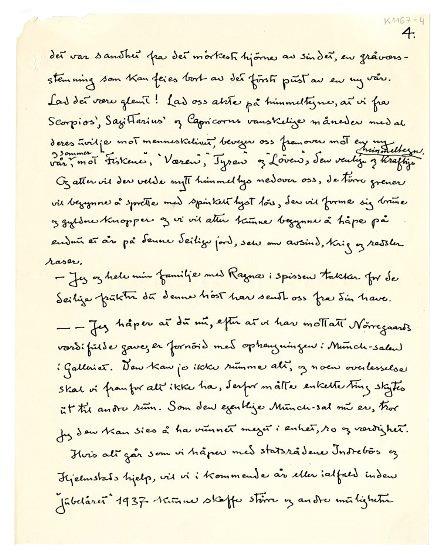 K 1167-4
4.
det var sandhet fra det mörkeste hjörne av sindet, en gråværs-
stemning som kan feies bort av det förste pust av en ny vår.
Lad det være glemt! Lad oss akte på himmeltegne, at vi fra
Scorpios', Sagittarius' og Capricorns vanskelige måneder med al
deres uvilje mot menneskelivet, beveger oss fremover mot en ny
sommer himmeltegn.
vår mot "Fiskene", "Væren", Tyren og Löven, den venlige og kraftige
Og atter vil der velde nytt himmellys nedover oss, de törre grener
vil begynne å sprette med spinkelt lyst löv, der vil forme sig brune
og gyldne knopper og vi vil atter kunne begynne å håpe på
endnu et år på denne deilige jord, selv om avsind, krig og redsler
raser.
— Jeg og hele min familie med Ragna i spissen takker for de
deilige frukter du denne höst har sendt oss fra din have.
— — Jeg håper at du nu, efter at vi har mottatt Nörregaards
værdifulde gave, er fornöid med ophengningen i Munch-salen
i Galleriet. Den kan jo ikke rumme alt, og noen overlesselse
skal vi fremfor alt ikke ha, derfor måtte enkelte ting skytes
ut til andre rum. Som den egentlige Munch-sal nu er, tror
jeg den kan sies å ha vunnet meget i enhet, ro og værdighet.
Hvis alt går som vi håper med statsrådene Indrebös og
Hjelmtveits hjelp, vil vi i kommende år eller ialfald inden
"Jubelåret" 1937 kunne skaffe större og andre muligheter